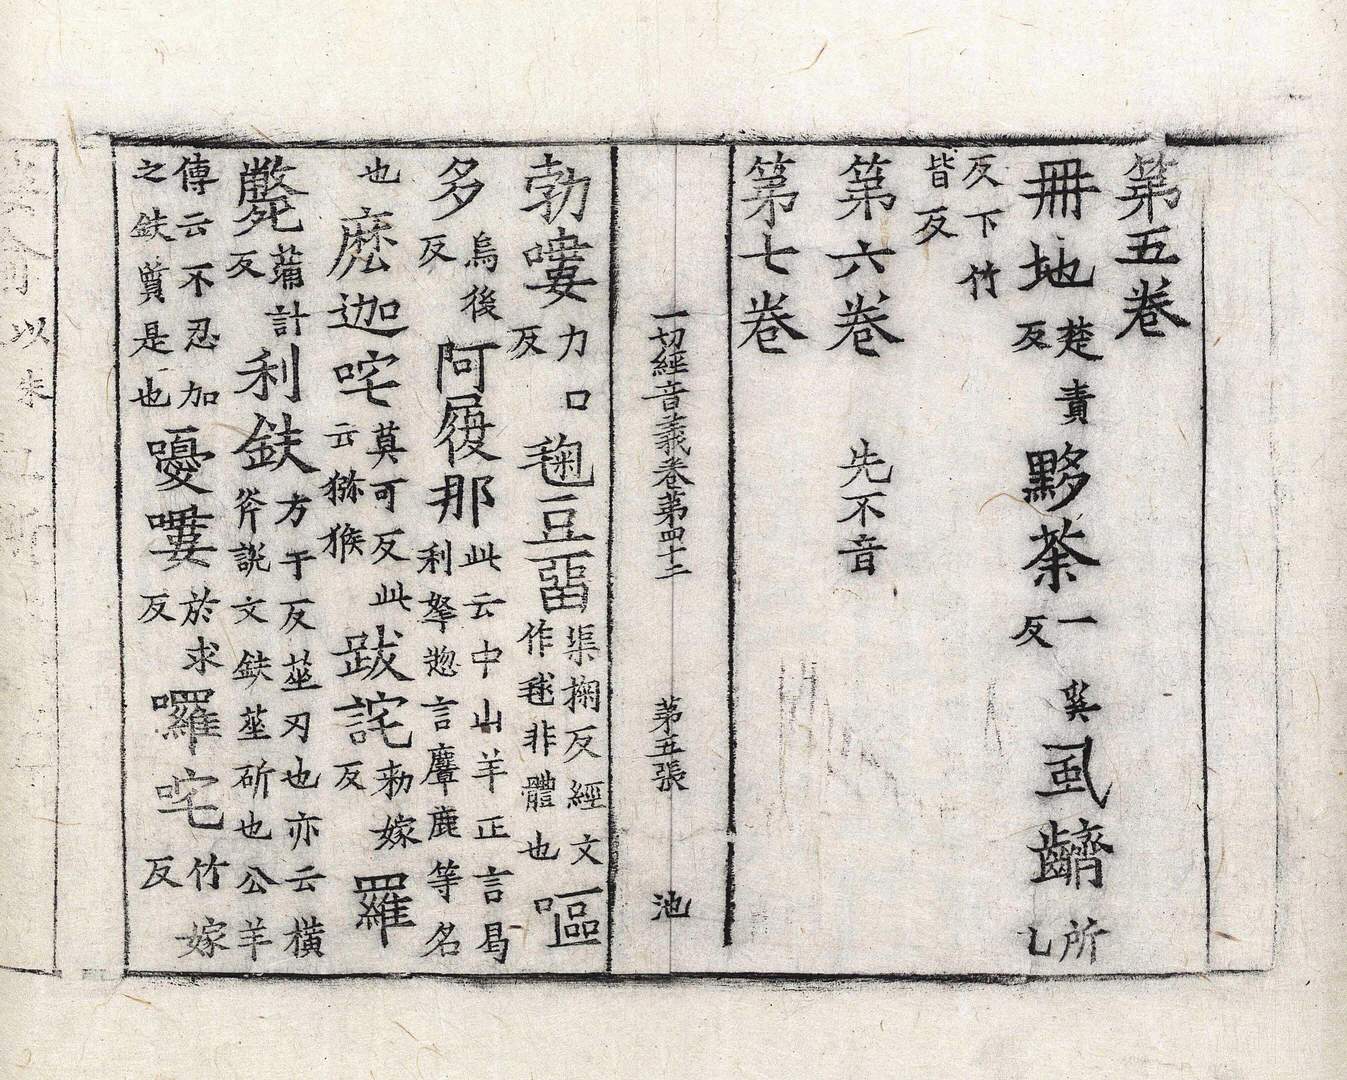 第五卷
冊地楚責反黟荼一奚反虱齌所乙
反下竹皆反
第六卷 先不音
第七卷
一切經音義卷第四十二 第五張 池
勃嘍力口反毱豆𤲸渠掬反經文作毬非體也嘔
多烏後反阿㞋那此云中山羊正言曷利拏惣言麞鹿等名
也麽迦咤莫可反此云獼猴跋詫勑嫁反羅
斃蒲計反利鈇方于反莝刃也亦云橫斧説文鈇莝斫也公羊
傳云不忍加之鈇質是也嚘嘍於求反囉咤竹嫁反